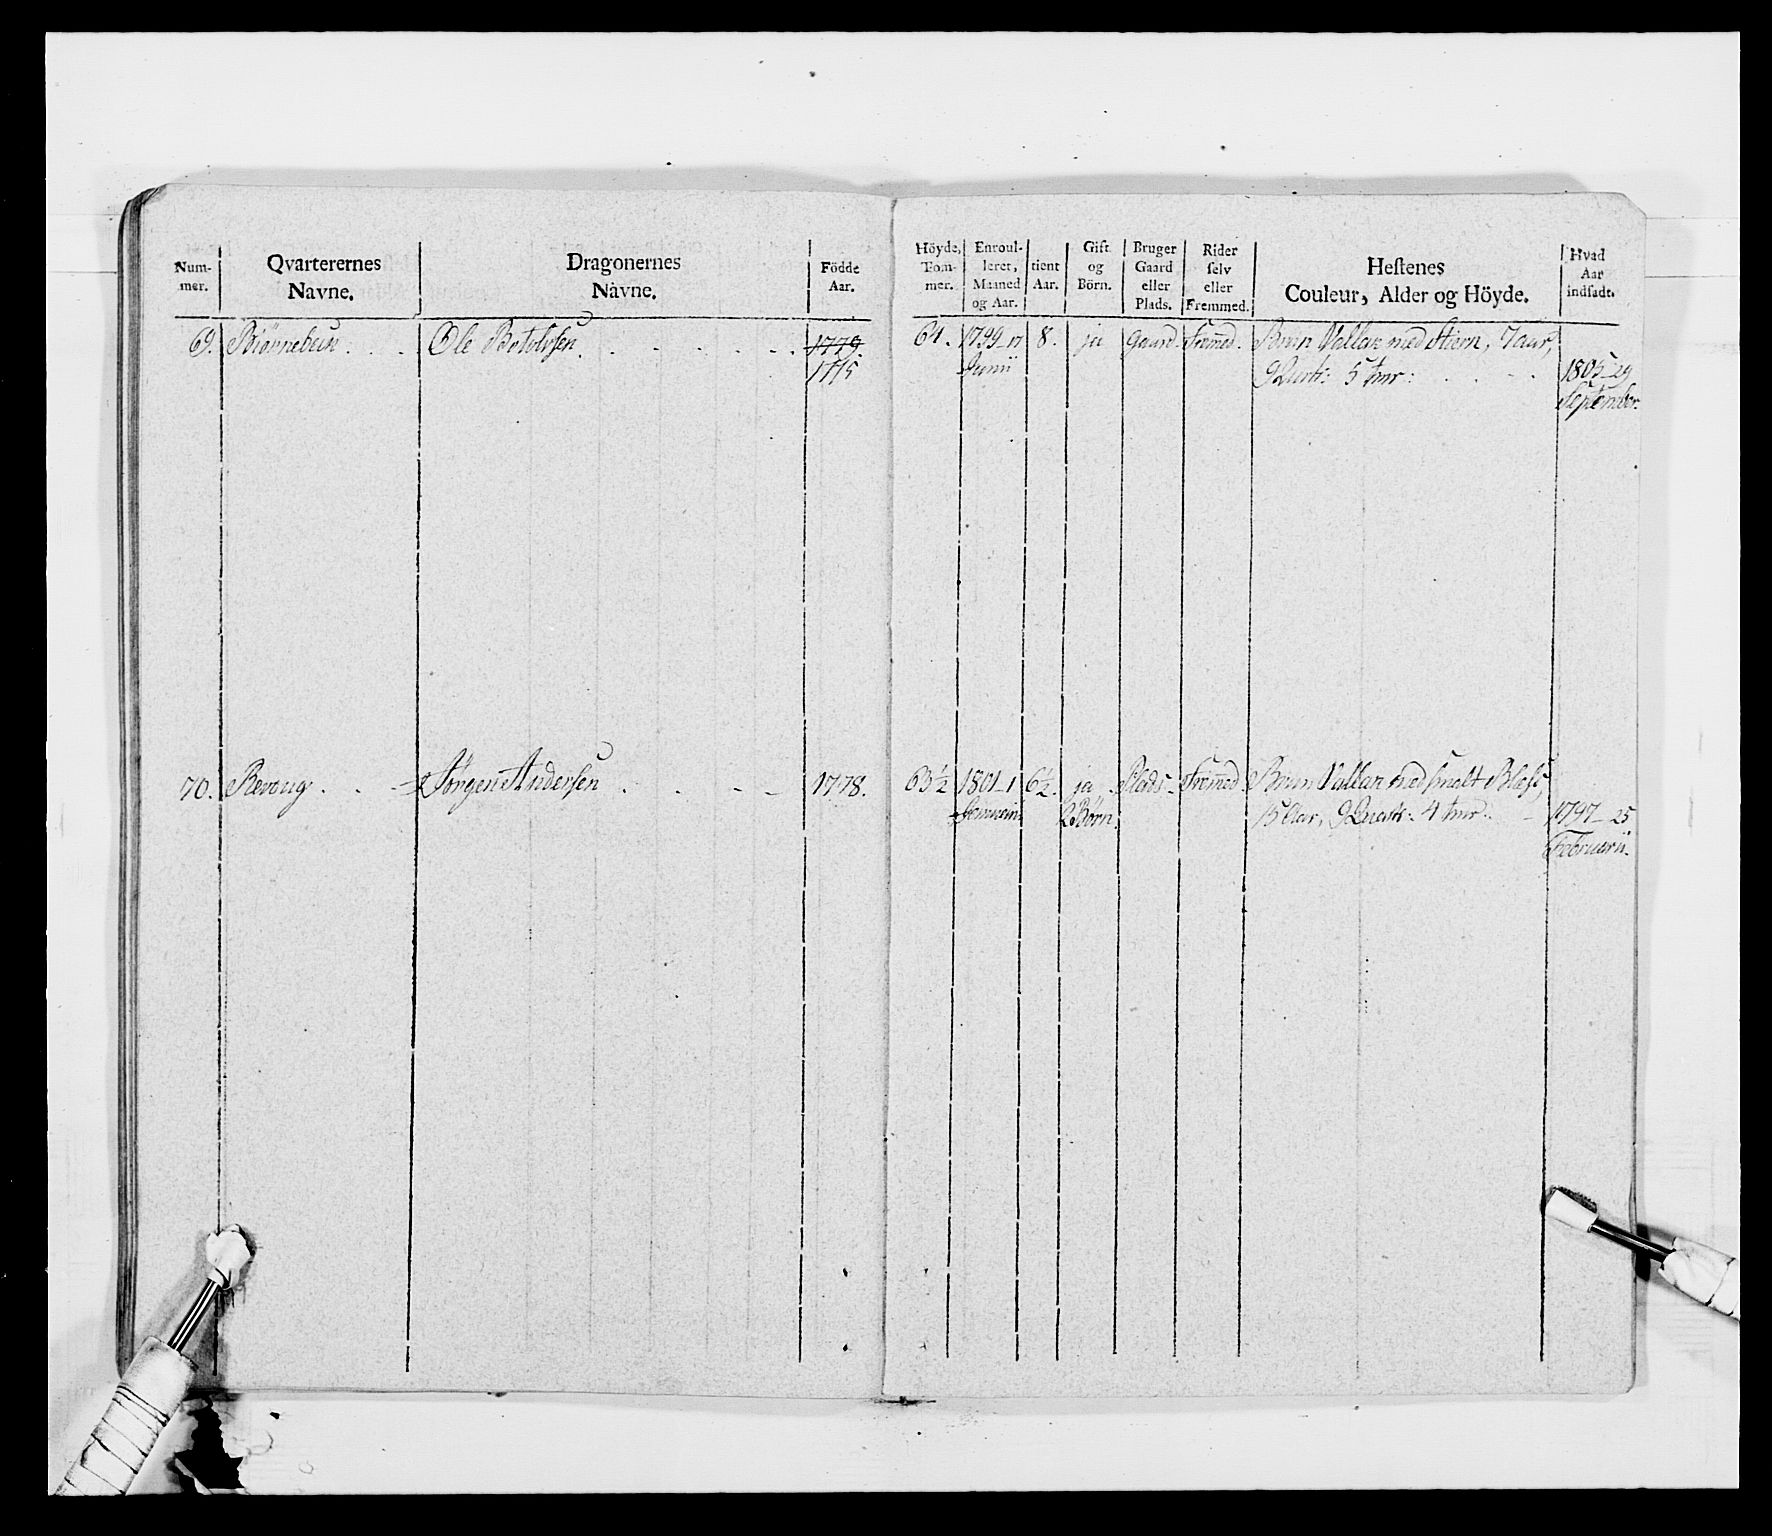 Num-
mer.
Qvarterernes
Navne.
Dragonernes
Nàvne.
Födde
Aar.
Höyde,
Tom-
mer.
Enroul-
leret,
Maaned
og Aar.
tient
Aar.
Gift
og
Börn.
Bruger
Gaard
eller
Plads.
Rider
ſelv
eller
Fremmed.
Heſtenes
Couleur, Alder og Höyde.
Hvad
Aar
indſadt.
69. Ole 1779. 64. 1799-17 8. ja Gaard. Fremed. Brun Vallak med Stiern, 7 aar,
1775 Junii 9 Qurtr: 5 tmr: 1805-29
September.
70. Jørgen Andersen 1778. 63½ 1801-1 6½. ja Plads. Fremed. Brun Vallak med smalt Bless,
2 Børn. 15 Aar, 9 Quartr: 4 tmr: 1797-25
Februarii.